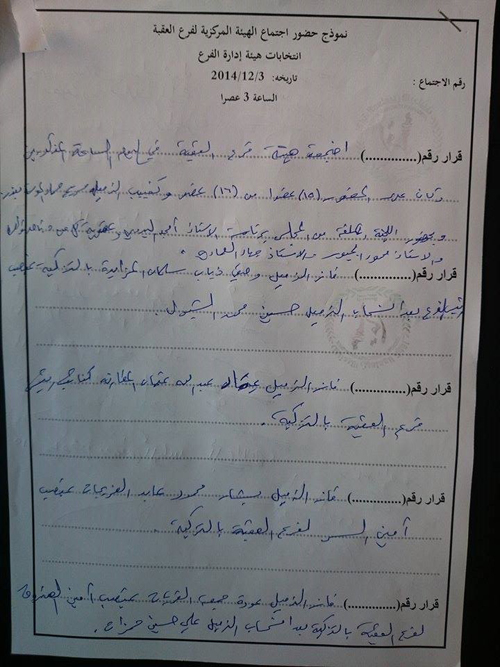 نموذج حضور اجتماع الهيئة المركزية لفرع العقبة
انتخابات هيئة إدارة الفرع
رقم الاجتماع : تاريخه: 2014/12/3
الساعة 3 عصرا
قرار رقم(..............) اجتمعت هيئة فرع العقبة في
وكان عدد الحضور (١٥) عضوا من (١٦) عضو
وبحضور اللجنة المكلفة من المجلس برئاسة الاستاذ أمين
والاستاذ محمود والاستاذ جهاد
قرار رقم(..............) فاز الزميل وصفي ذياب سلمان بالتزكية بمنصب
رئيس الفرع بعد انسحاب الزميل حسين محمد
قرار رقم(..............) فاز الزميل عماد عبدالله عثمان كنائب رئيس
فرع العقبة بالتزكية.
قرار رقم(..............) فاز الزميل بشار محمد عايد بمنصب
أمين السر لفرع العقبة بالتزكية.
قرار رقم(..............) فاز الزميل عودة جمعه بمنصب أمين الصندوق
لفرع العقبة بالتزكية بعد انسحاب الزميل علي حسين